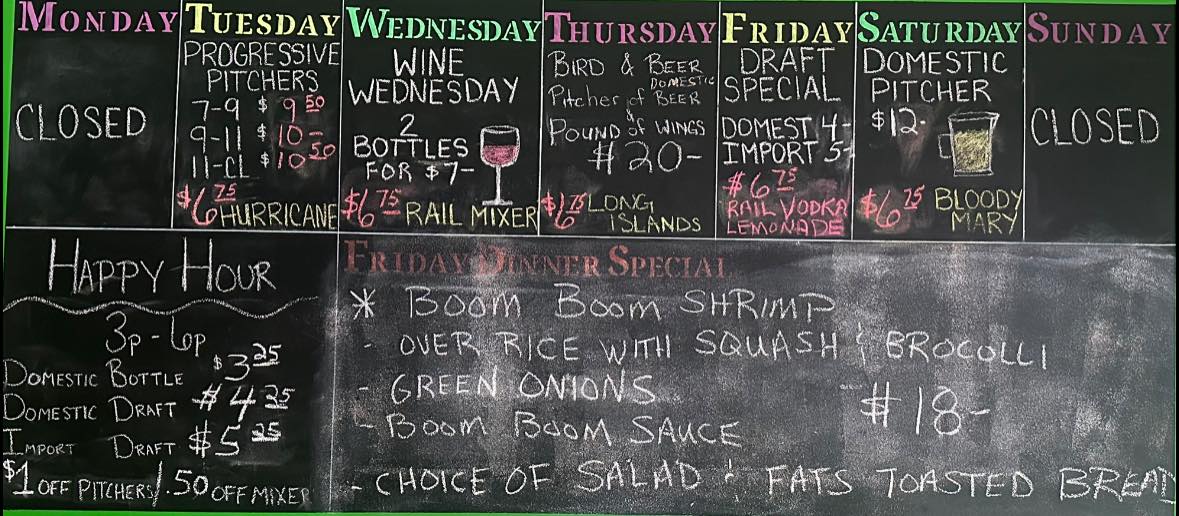 MONDAY
CLOSED
TUESDAY
PROGRESSIVE
PITCHERS
7-9 $ 9 50
9-11 $ 10-
11-CL $ 10 50
$6 75 HURRICANE
WEDNESDAY
WINE
WEDNESDAY
2
BOTTLES
FOR $7-
$6 75 RAIL MIXER
THURSDAY
BIRD & BEER
DOMESTIC
Pitcher of BEER
&
POUND of WINGS
$20-
$6 75 LONG
ISLANDS
FRIDAY
DRAFT
SPECIAL
DOMEST 4-
IMPORT 5-
$6 75
RAIL VODKA
LEMONADE
SATURDAY
DOMESTIC
PITCHER
$12-
$6 75 BLOODY
MARY
SUNDAY
CLOSED
HAPPY HOUR
3p-6p
DOMESTIC BOTTLE $3 25
DOMESTIC DRAFT $4 25
IMPORT DRAFT $5 25
$1 OFF PITCHERS/.50 OFF MIXER
FRIDAY DINNER SPECIAL
* BOOM BOOM SHRIMP
- OVER RICE WITH SQUASH & BROCOLLI
- GREEN ONIONS
- BOOM BOOM SAUCE
$18-
- CHOICE OF SALAD & FATS TOASTED BREAD